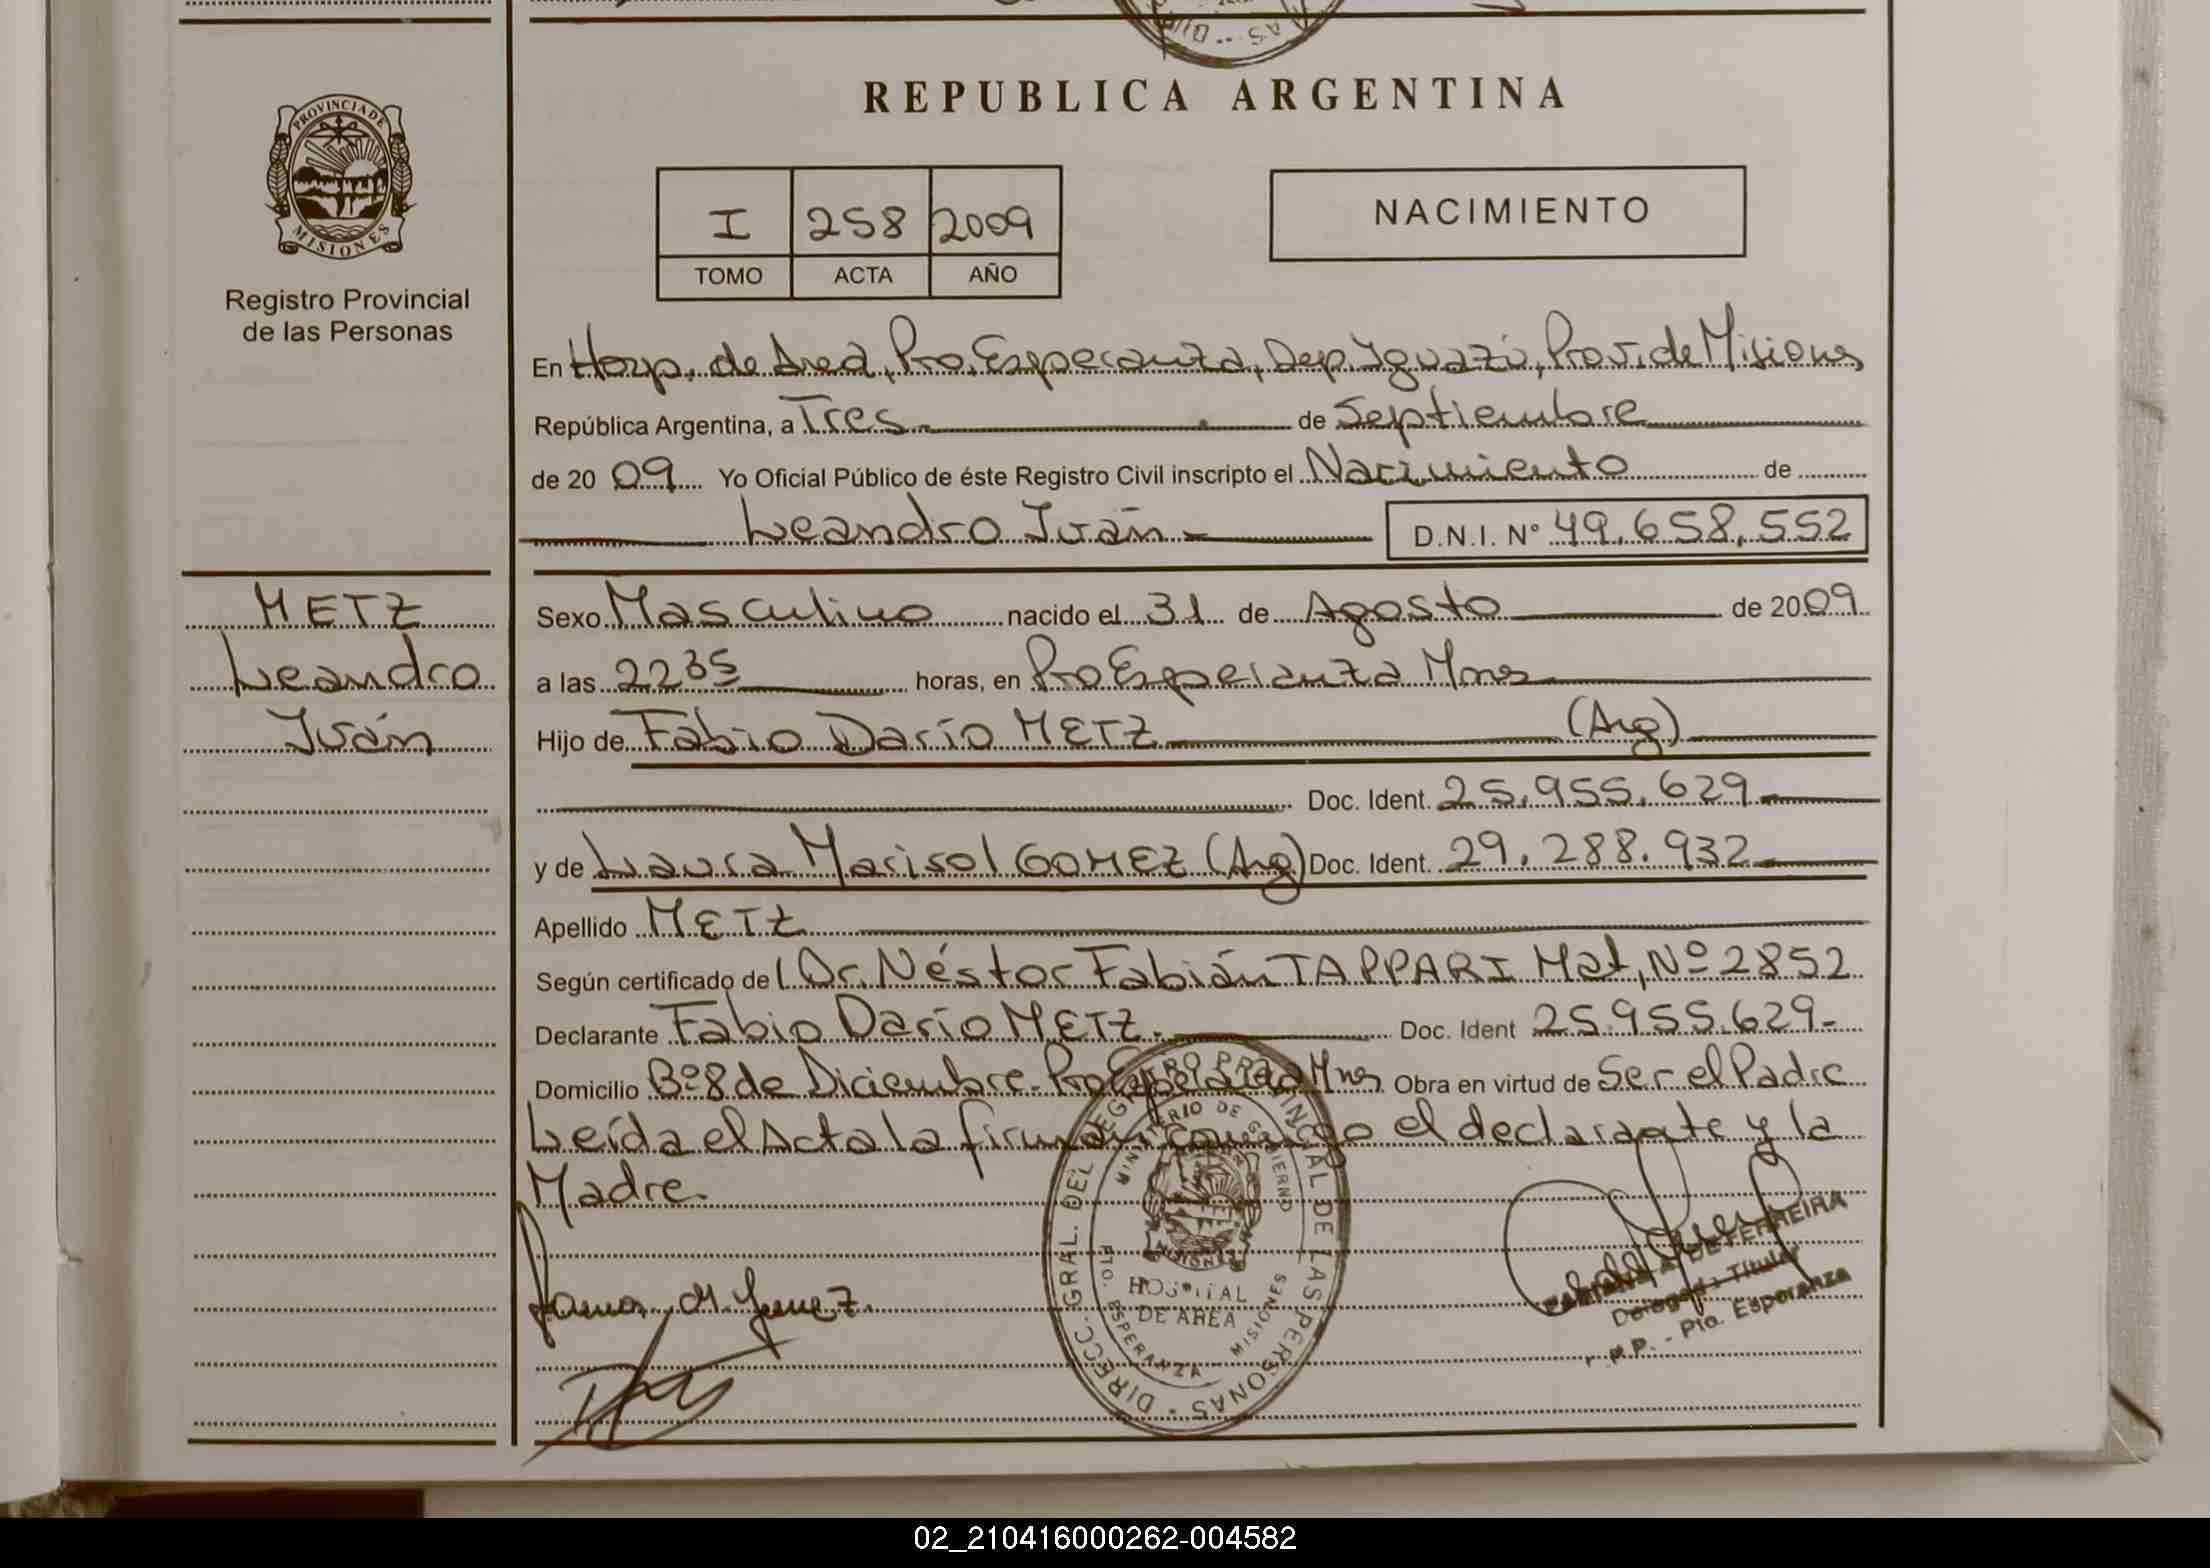 REPUBLICA ARGENTINA
PROVINCIA DE
MISIONES
Registro Provincial
de las Personas
I 258 2009
TOMO ACTA AÑO
NACIMIENTO
En Hosp. de Area, Pto. Esperanza, Dep. Iguazú, Prov. de Misiones
República Argentina, a Tres de Septiembre
de 2009 Yo Oficial Público de éste Registro Civil inscripto el Nacimiento de
Leandro Iván D.N.I. Nº 49.658.552
METZ
Leandro
Iván
Sexo Masculino nacido el 31 de Agosto de 2009
a las 22 35 horas, en Pto Esperanza Mnes
Hijo de Fabio Darío METZ (Arg)
Doc. Ident. 25.955.629
y de Laura Marisol GOMEZ (Arg) Doc. Ident. 29.288.932
Apellido METZ
Según certificado de l Dr. Néstor Fabián TAPPARI Mat. Nº 2852
Declarante Fabio Darío METZ. Doc. Ident 25.955.629-
Domicilio Bº 8 de Diciembre- Pto Esperanza Mnes Obra en virtud de Ser el Padre
Leída el Acta la firman conmigo el declarante y la
Madre.
DIRECC. GRAL. DEL REGISTRO PROVINCIAL DE LAS PERSONAS
MINISTERIO DE GOBIERNO
MISIONES
HOSPITAL
DE AREA
PTO. ESPERANZA MISIONES
DE FERREIRA
Delegada Titular
Pto. Esperanza
02_210416000262-004582